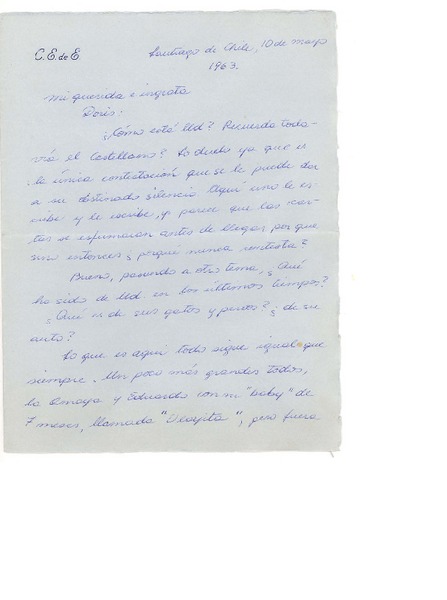 C. E. de E.
Santiago de Chile, 10 de mayo
1963.
mi querida e ingrata
Doris:
¿Cómo está Ud? Recuerda toda-
vía el Castellano? Lo dudo ya que es
la única contestación que se le puede dar
a su obstinado silencio. Aquí uno le es-
cribe y le escribe, y parece que las car-
tas se esfumaran antes de llegar, por que
sino entonces ¿porqué nunca contesta?
Bueno, pasando a otro tema, ¿Qué
ha sido de Ud. en los últimos tiempos?
¿Qué es de sus gatos y perros? ¿de su
auto?
Lo que es aquí todo sigue igual que
siempre. Un poco más grandes todos,
la Amaya y Eduardo con su "baby" de
7 meses, llamada, pero fuera